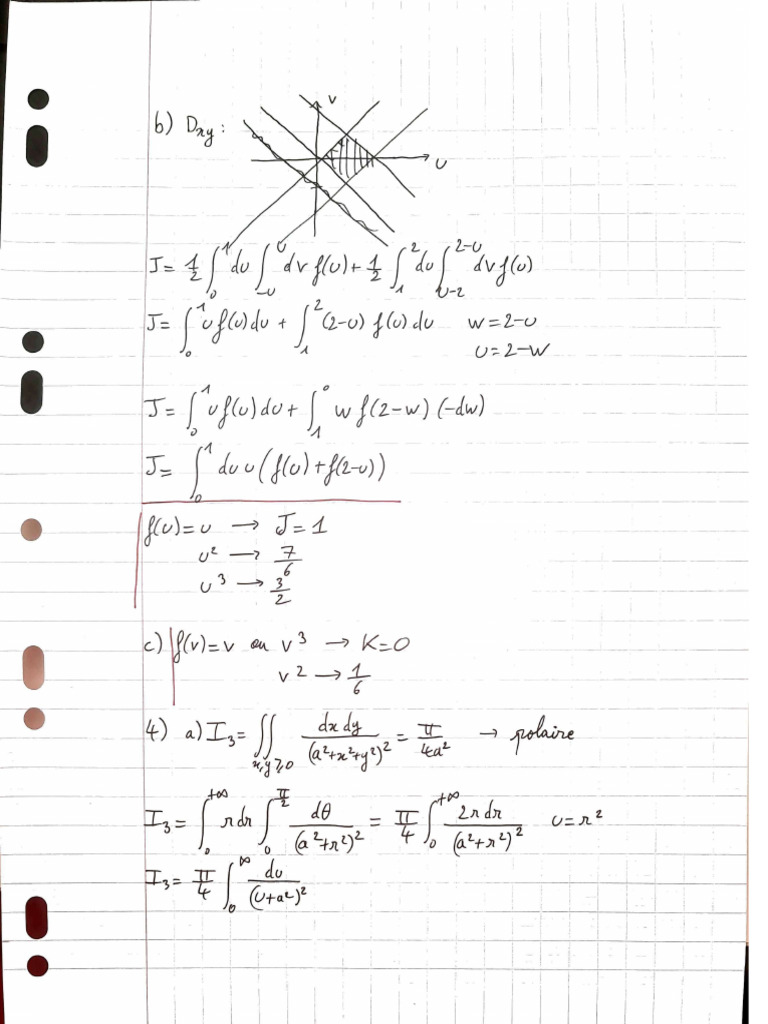 b) Dxy :
V
U
J = 1/2 ∫₀¹ du ∫₋ᵤᵘ dv f(u) + 1/2 ∫₁² du ∫ᵤ₋₂²⁻ᵘ dv f(u)
J = ∫₀¹ u f(u) du + ∫₁² (2-u) f(u) du w = 2-u
u = 2-w
J = ∫₀¹ u f(u) du + ∫₁⁰ w f(2-w) (-dw)
J = ∫₀¹ du u (f(u) + f(2-u))
f(u) = u → J = 1
u² → 7/6
u³ → 3/2
c) f(v) = v ou v³ → K = 0
v² → 1/6
4) a) I₃ = ∬_{x,y⩾0} dx dy/(a²+x²+y²)² = π/4a² → polaire
I₃ = ∫₀^{+∞} r dr ∫₀^{π/2} dθ/(a²+r²)² = π/4 ∫₀^{+∞} 2r dr/(a²+r²)² u = r²
I₃ = π/4 ∫₀^∞ du/(u+a²)²